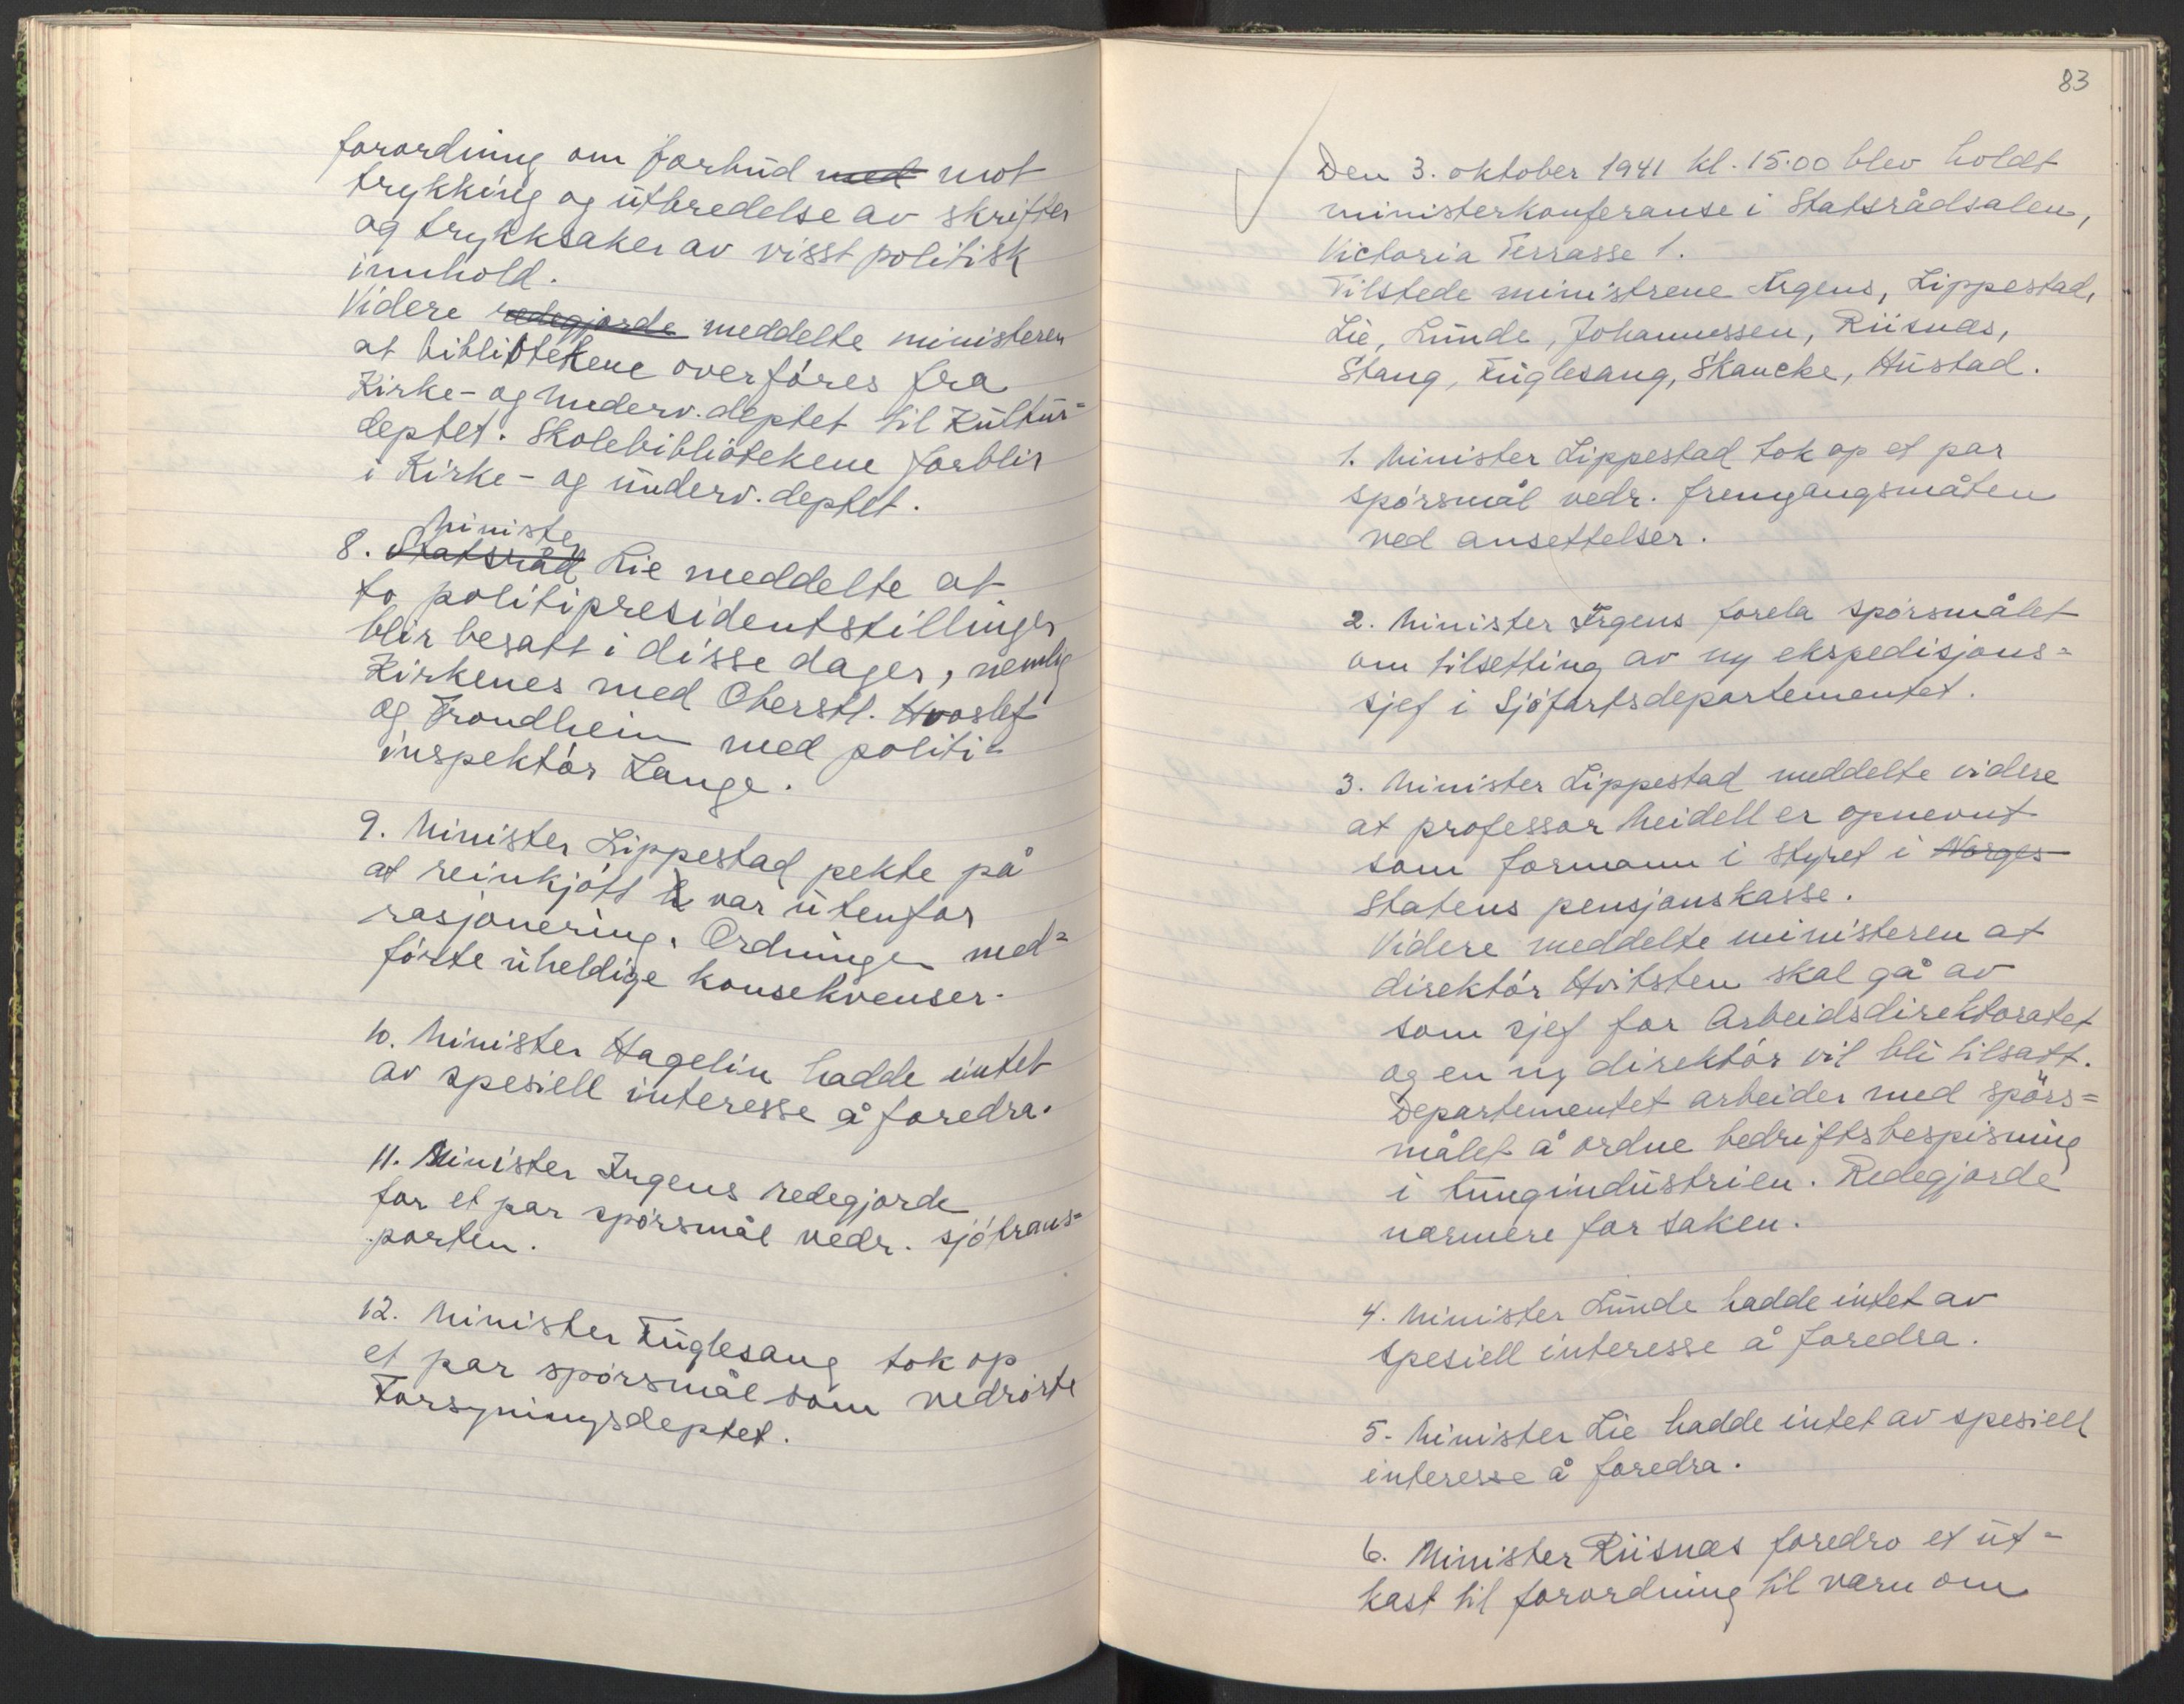 forordning om forbud med mot
trykking og utbredelse av skrifter
og trykksaker av visst politisk
innhold.
Videre redegjorde meddelte ministeren
at bibliotekene overføres fra
Kirke- og Underv. deptet til Kultur-
deptet. Skolebibliotekene forblir
i Kirke- og underv. deptet.
Minister
8. Statsråd Lie meddelte at
to politipresidentstillinger
blir besatt i disse dager, nemlig
Kirkenes med Oberstl. Hvoslef
og Trondheim med politi-
inspektør Lange.
9. Minister Lippestad pekte på
at reinkjøtt var utenfor
rasjonering. Ordningen med-
førte uheldige konsekvenser.
10. Minister Hagelin hadde intet
av spesiell interesse å foredra.
11. Minister Irgens redegjorde
for et par spørsmål vedr. sjøtrans-
porten.
12. Minister Fuglesang tok op
et par spørsmål som vedrørte
Forsyningsdeptet.
83
Den 3. oktober 1941 kl. 15.00 blev holdt
ministerkonferanse i Statsrådsalen,
Victoria Terrasse 1.
Tilstede ministrene Irgens, Lippestad,
Lie, Lunde, Johannessen, Riisnæs,
Stang, Fuglesang, Skancke, Hustad.
1. Minister Lippestad tok op et par
spørsmål vedr. fremgangsmåten
ved ansettelser.
2. Minister Irgens forela spørsmålet
om tilsetting av ny ekspedisjons-
sjef i Sjøfartsdepartementet.
3. Minister Lippestad meddelte videre
at professor Meidell er opnevnt
som formann i styret i Norges
Statens pensjonskasse.
Videre meddelte ministeren at
direktør Hvitsten skal gå av
som sjef for Arbeidsdirektoratet
og en ny direktør vil bli tilsatt.
Departementet arbeider med spørs-
målet å ordne bedriftsbespisning
i tungindustrien. Redegjorde
nærmere for saken.
4. Minister Lunde hadde intet av
spesiell interesse å foredra.
5. Minister Lie hadde intet av spesiell
interesse å foredra.
6. Minister Riisnæs foredro et ut-
kast til forordning til vern om